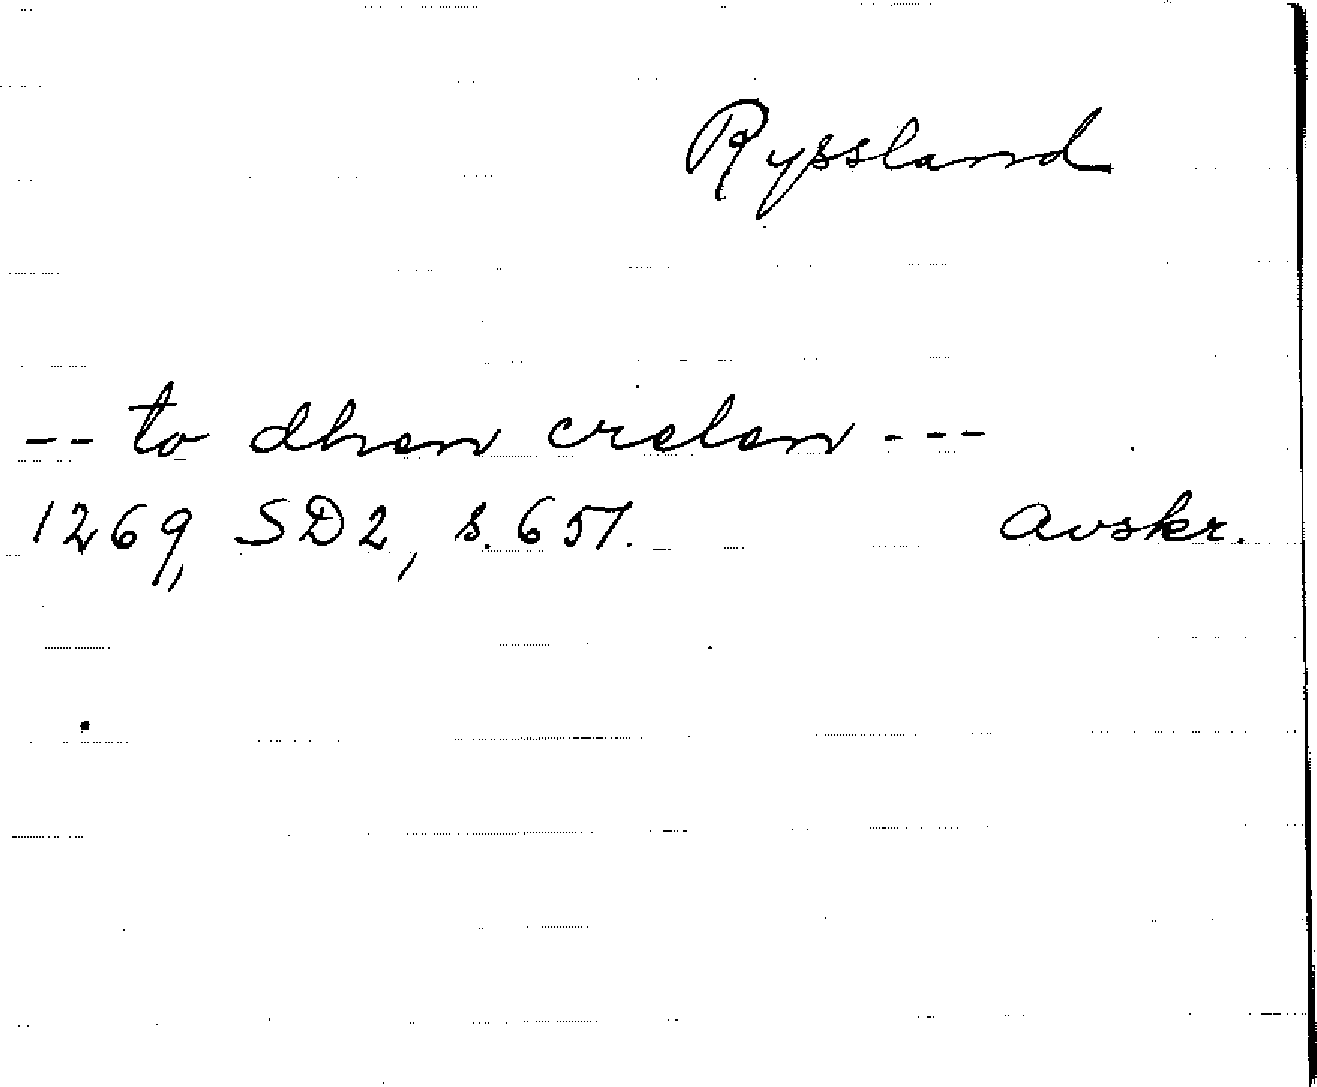 Ryssland
-- to dhen crelen ---
1269, SD2, s. 651. avskr.